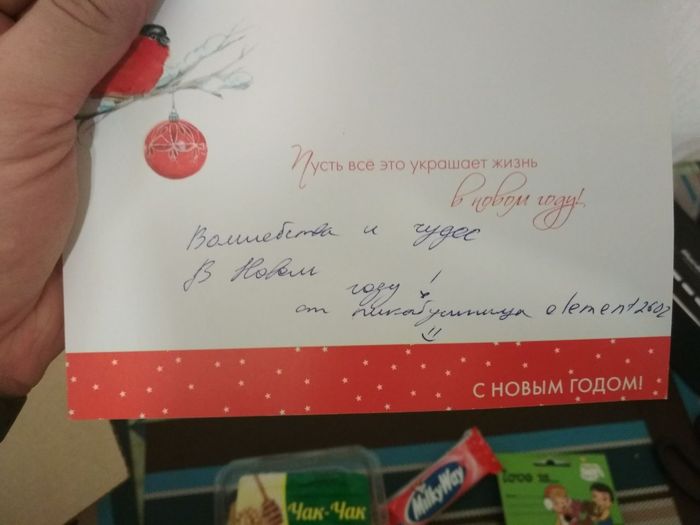 Пусть всё это украшает жизнь
в новом году!
Волшебства и чудес
В Новом
году!
от пикабушница element2602
С НОВЫМ ГОДОМ!
ЧАК-ЧАК
MilkyWay
love is...